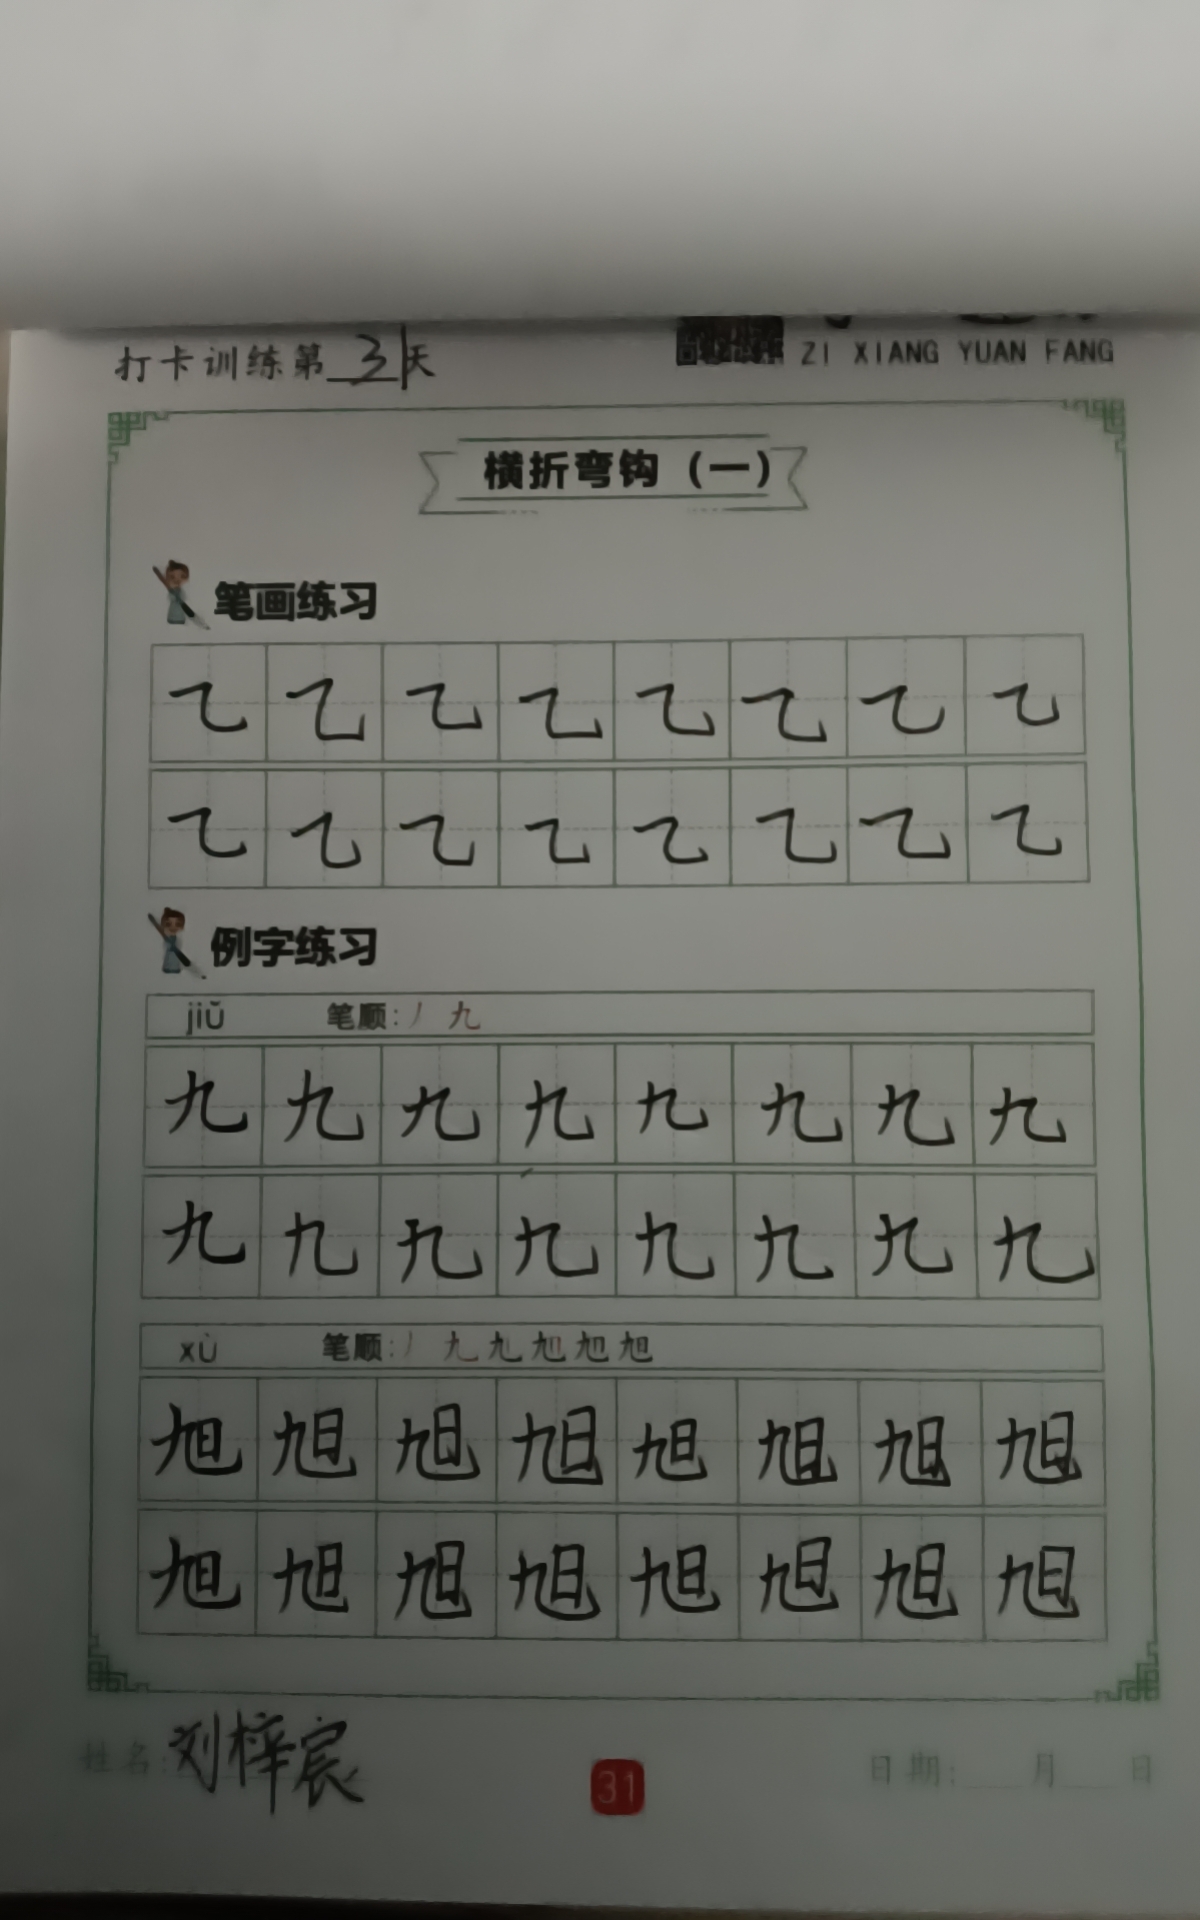 打卡训练第31天
ZI XIANG YUAN FANG
横折弯钩（一）
笔画练习
乙 乙 乙 乙 乙 乙 乙 乙
乙 乙 乙 乙 乙 乙 乙 乙
例字练习
jiǔ 笔顺: 丿 九
九 九 九 九 九 九 九 九
九 九 九 九 九 九 九 九
xù 笔顺: 丿 九 旭 旭 旭 旭
旭 旭 旭 旭 旭 旭 旭 旭
旭 旭 旭 旭 旭 旭 旭 旭
姓名: 刘梓宸
31
日期: 月 日